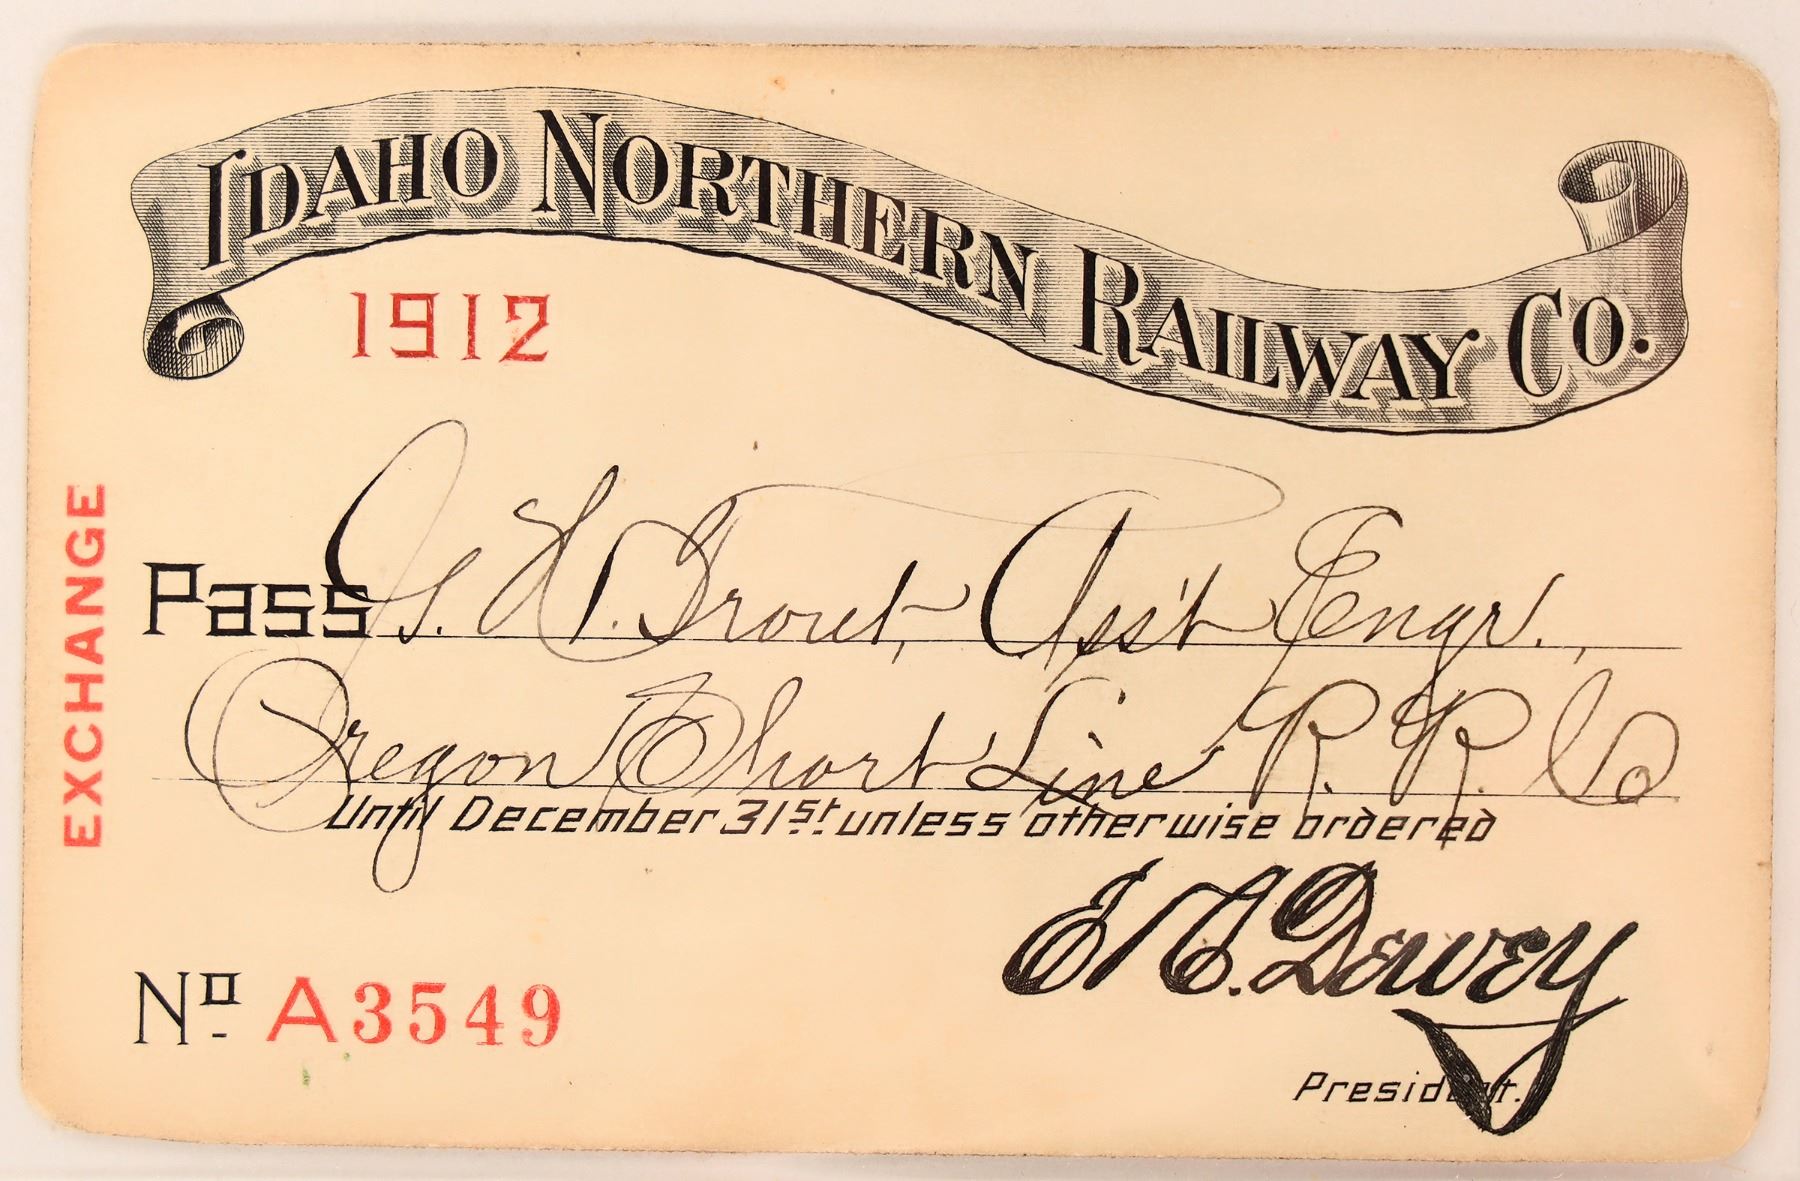 IDAHO NORTHERN RAILWAY CO.
1912
EXCHANGE
Pass J. H. Trout, Ass't Engr.,
Oregon Short Line R. R. Co
Until December 31st. unless otherwise ordered
No A3549
E. C. Dewey
President.